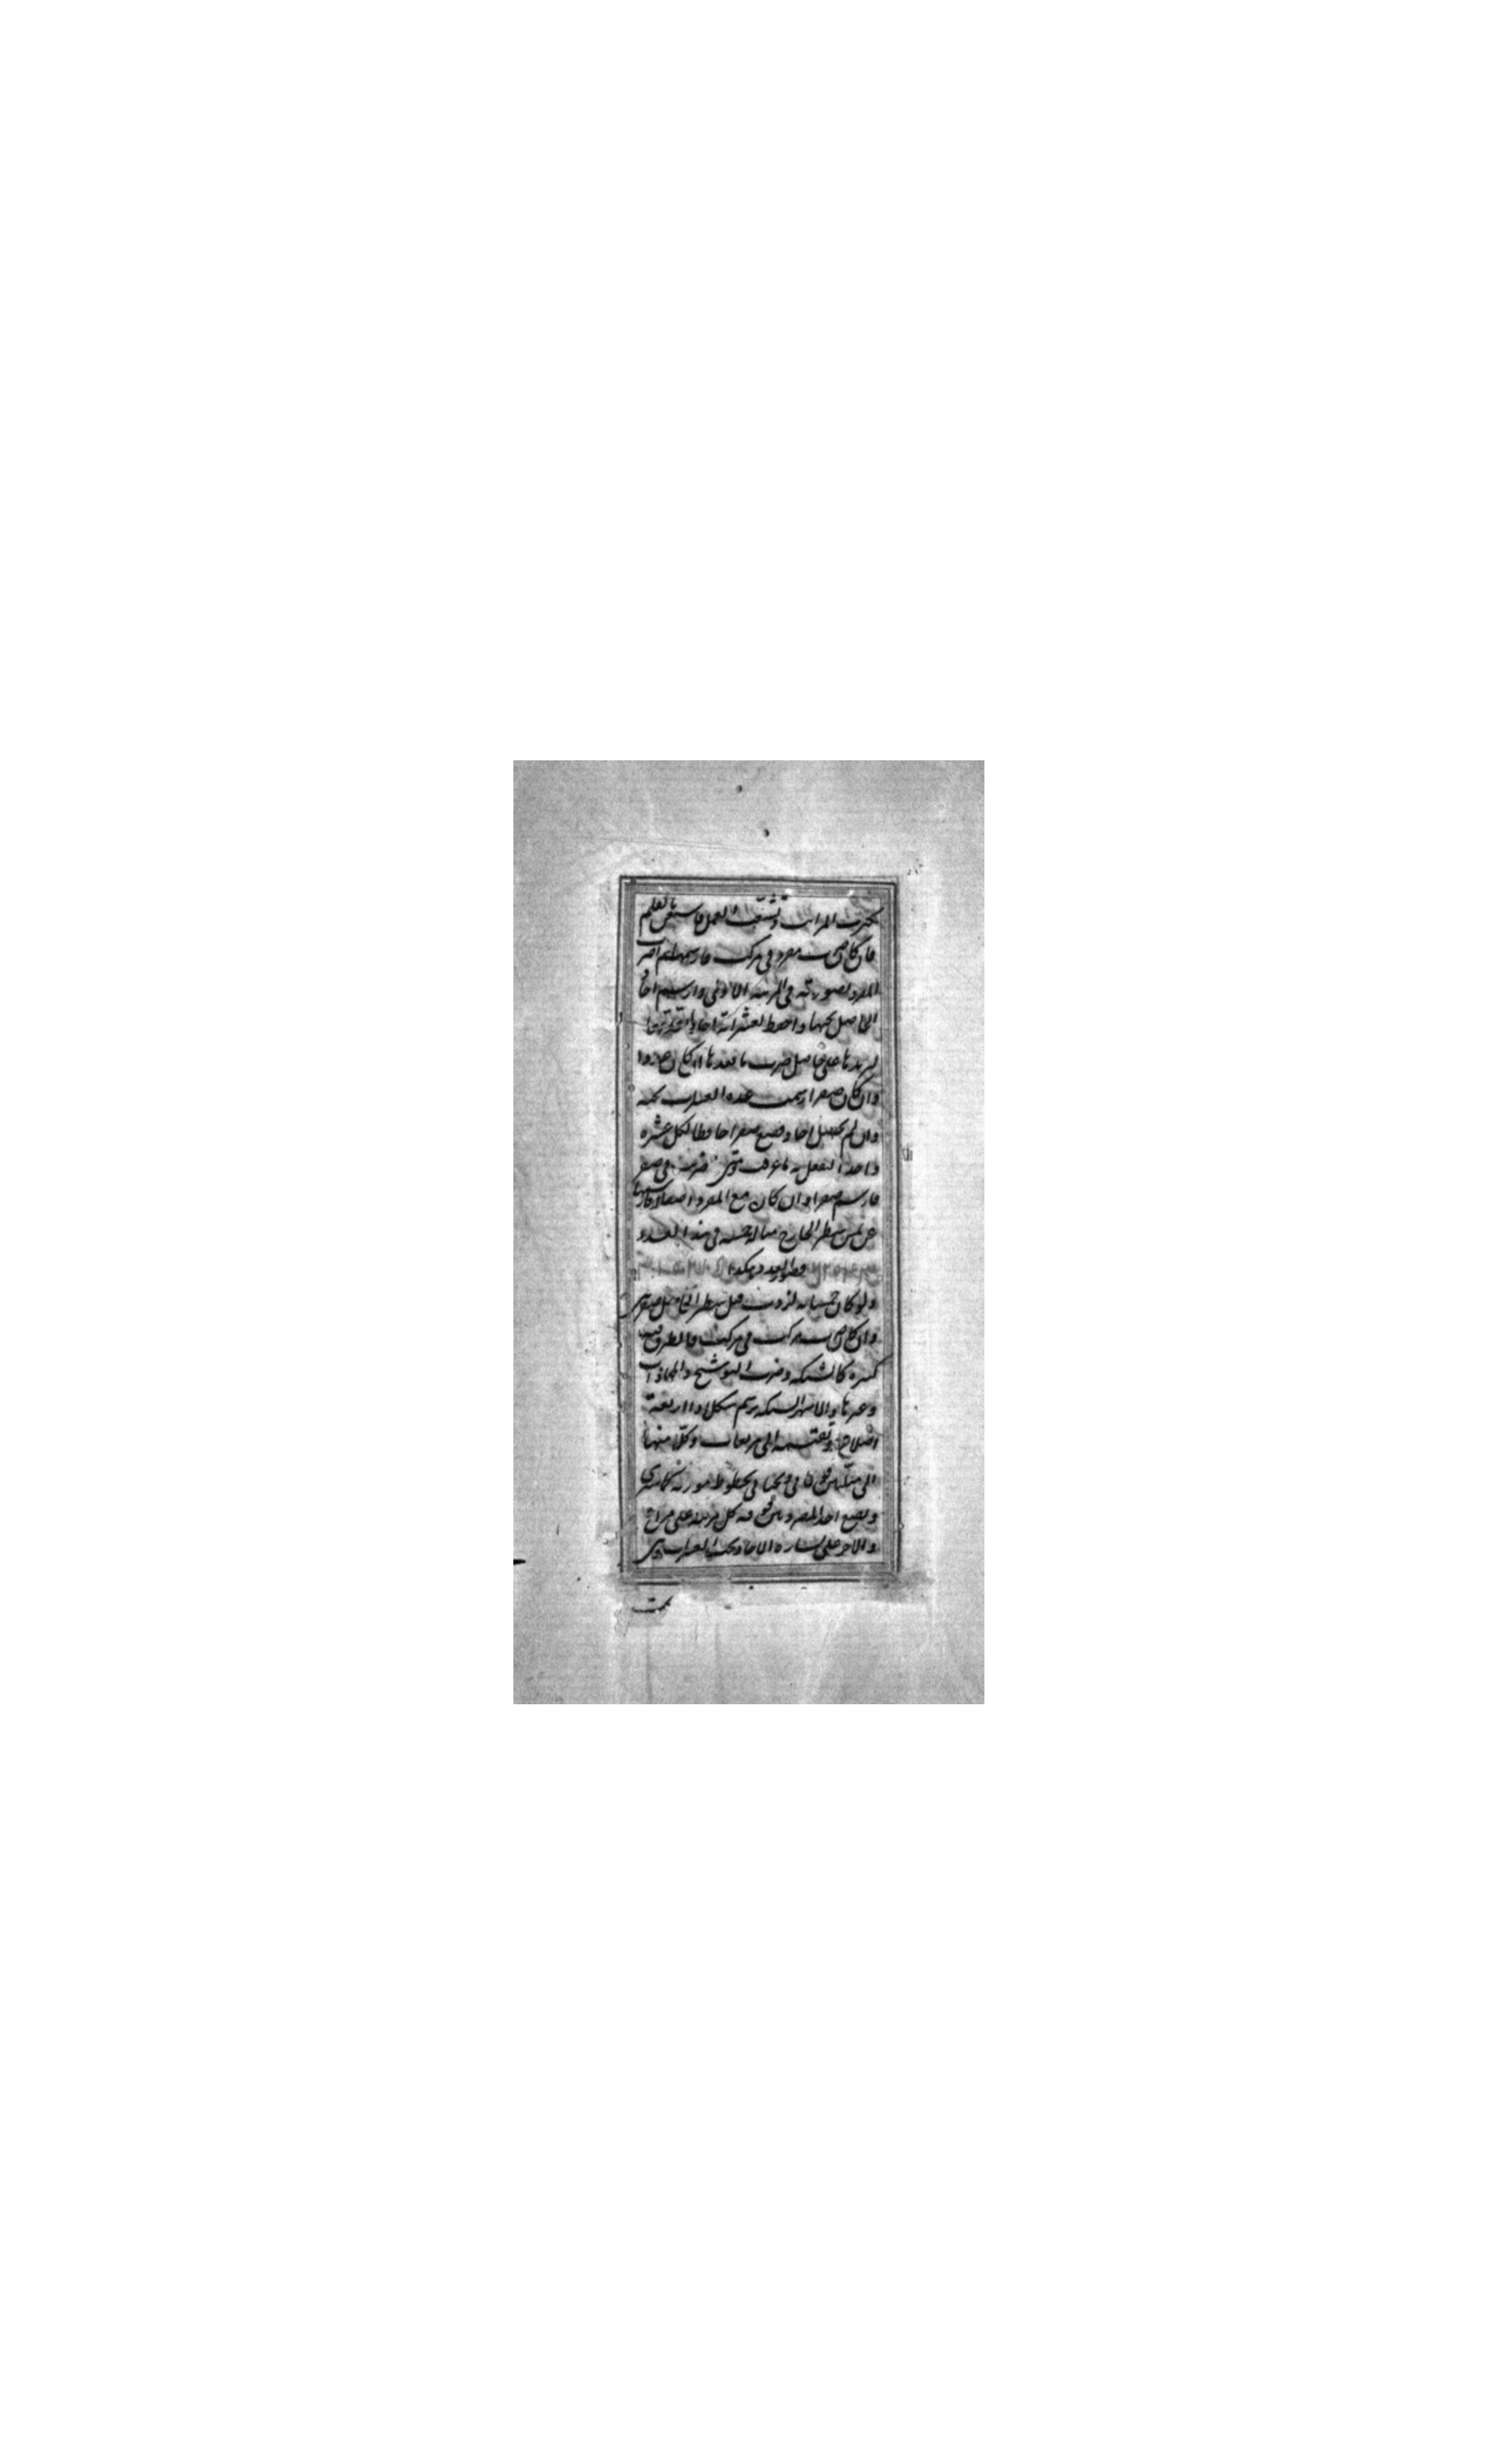 كثرت المراتب وتشعّب العمل فاستعن بالقلم
فان كان ضرب مفرد في مركب فارسمهما ثم اضرب
المفرد بصورته في المرتبة الاولى وارسم احاد
الحاصل تحتها واحفظ لعشراته احادا بعدتها
لتزيدها على حاصل ضرب ما بعدها ان كان عددا
وان كان صفرا رسمت عدة العشرات تحته
وان لم يحصل احاد فضع صفرا حافظا لكل عشرة
واحدا لتفعل به ما عرفت ومتى ضربت في صفر
فارسم صفرا وان كان مع المفرد اصفار فارسمها
عن يمين سطر الخارج مثاله خمسة في هذا العدد
فصورة العمل هكذا
ولو كان خمسمائة لزدت قبل سطر الحاصل صفرين
وان كان ضرب مركب في مركب فالطرق فيه
كثيرة كالشبكة وضرب التوشيح والمحاذاة
وغيرها والاشهر الشبكة ترسم شكلا ذا اربعة
اضلاع وتقسمه الى مربعات وكلا منها
الى مثلثين فوقاني وتحتاني بخطوط موربة كما سترى
وتضع احد المضروبين فوقه كل مرتبة على مربع
والاخر على يساره الاحاد تحت العشرات وهي
تحت